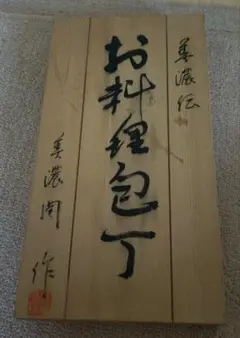 美濃伝
お料理包丁
美濃関
作